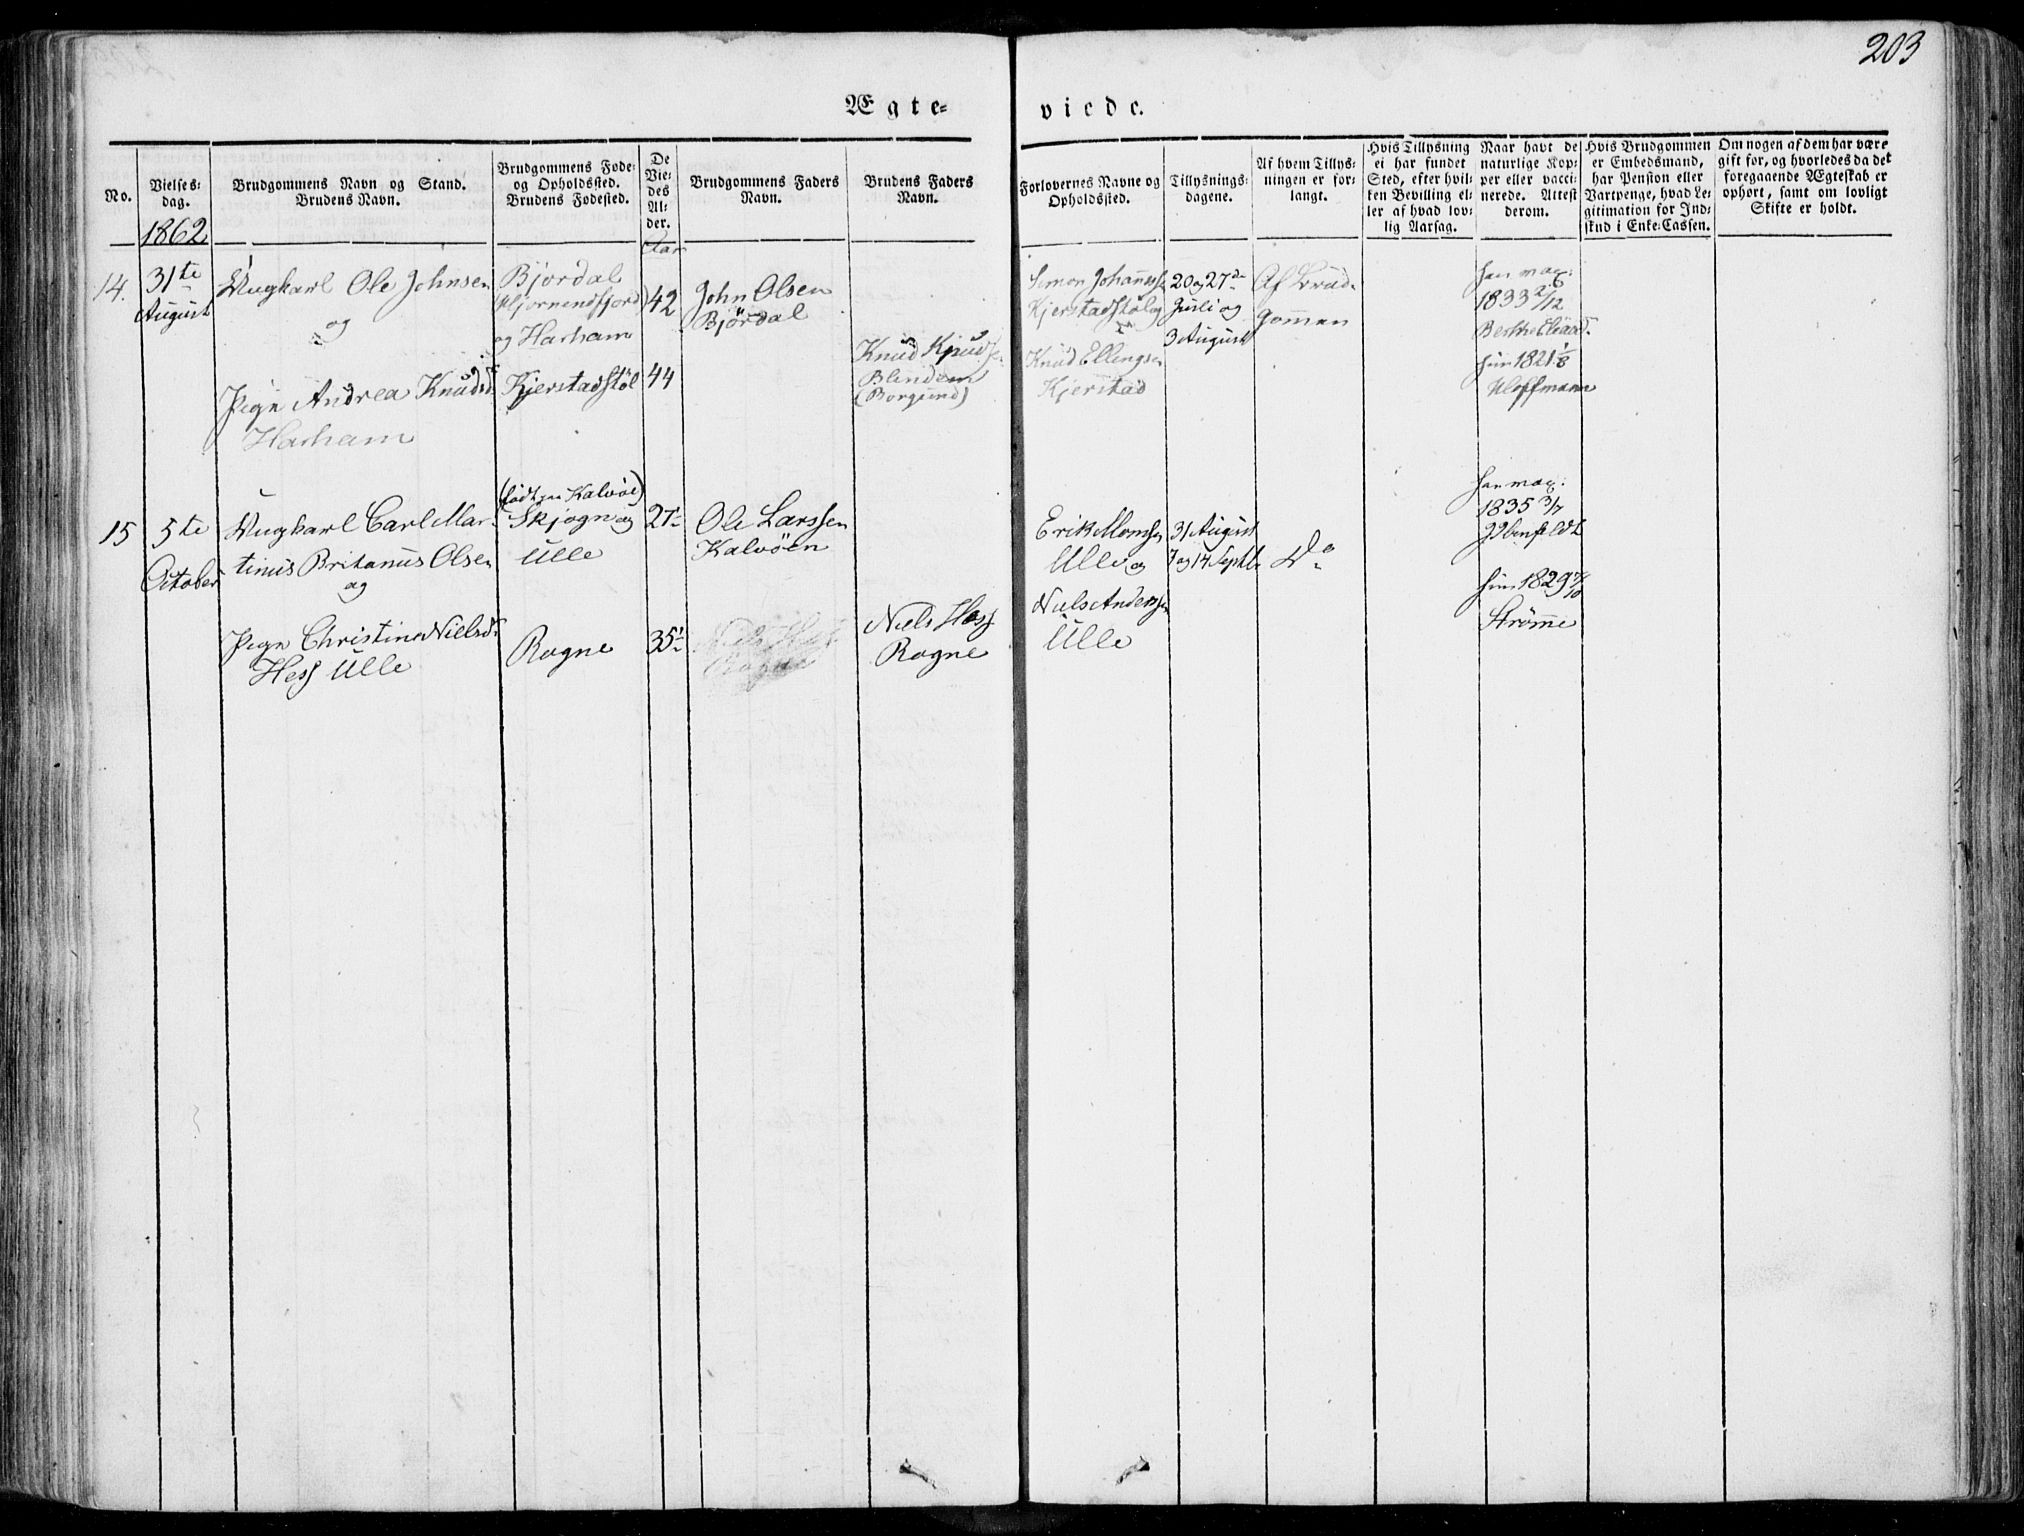 203
Ægte-
viede.
No.
Vielses-
dag.
1862
Brudgommens Navn og Stand.
Brudens Navn.
Brudgommens Føde-
og Opholdssted.
Brudens Fødested.
De
Vie-
des
Al-
der.
Aar
Brudgommens Faders
Navn.
Brudens Faders
Navn.
Forlovernes Navne og
Opholdssted.
Tillysnings-
dagene.
Af hvem Tillys-
ningen er for-
langt.
Hvis Tillysning
ei har fundet
Sted, efter hvil-
ken Bevilling el-
ler af hvad lov-
lig Aarsag.
Naar havt de
naturlige Kop-
per eller vacci-
nerede. Attest
derom.
Hvis Brudgommen
er Embedsmand,
har Pension eller
Vartpenge, hvad Le-
gitimation for Ind-
skud i Enke-Cassen.
Om nogen af dem har være
gift for, og hvorledes da det
foregaaende Ægteskab er
ophørt, samt om lovligt
Skifte er holdt.
14.
31te
August
Ungkarl Ole Johnsen
og
Pige Andrea Knudsd.
Harham
Bjørdal
(Hjørnendfjord)
og Harham
Kjerstadstøl
42
44
John Olsen
Bjørdal
Knud Knuds.
Blindem
(Borgund)
Simon Johanness.
Kjerstadstøl og
Knud Ellingsen
Kjerstad
20 og 27de
Juli og
3 August
Af Brud-
gommen
han vac.
1833 2/12
hun 1821 1/8
Hoffmann
15
5te
October
Ungkarl Carl Mar-
tinus Britanus Olsen
og
Pige Christine Nielsd.
Hess Ulle
(født paa Kalvøe)
Skjogn og
Ulle
Rogne
27
35
Ole Larssen
Kalvøen
Niels Hess
Rogne
Niels Hess
Rogne
Erik Monssen
Ulle og
Niels Anderssen
Ulle
31 August
7 og 14 Septbr
Do
han vac.
1835 3/7
Ibenfeldt
hun 1829 7/10
Strømme